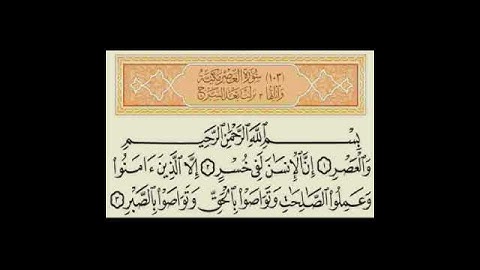 (١٠٣) سُورَةُ الْعَصْرِ مَكِّيَّة
وَآيَاتُهَا ٣ نَزَلَتْ بَعْدَ الشَّرْح
بِسْمِ اللَّهِ الرَّحْمَٰنِ الرَّحِيمِ
وَالْعَصْرِ ۝١ إِنَّ الْإِنسَانَ لَفِي خُسْرٍ ۝٢ إِلَّا الَّذِينَ ءَامَنُوا
وَعَمِلُوا الصَّالِحَاتِ وَتَوَاصَوْا بِالْحَقِّ وَتَوَاصَوْا بِالصَّبْرِ ۝٣